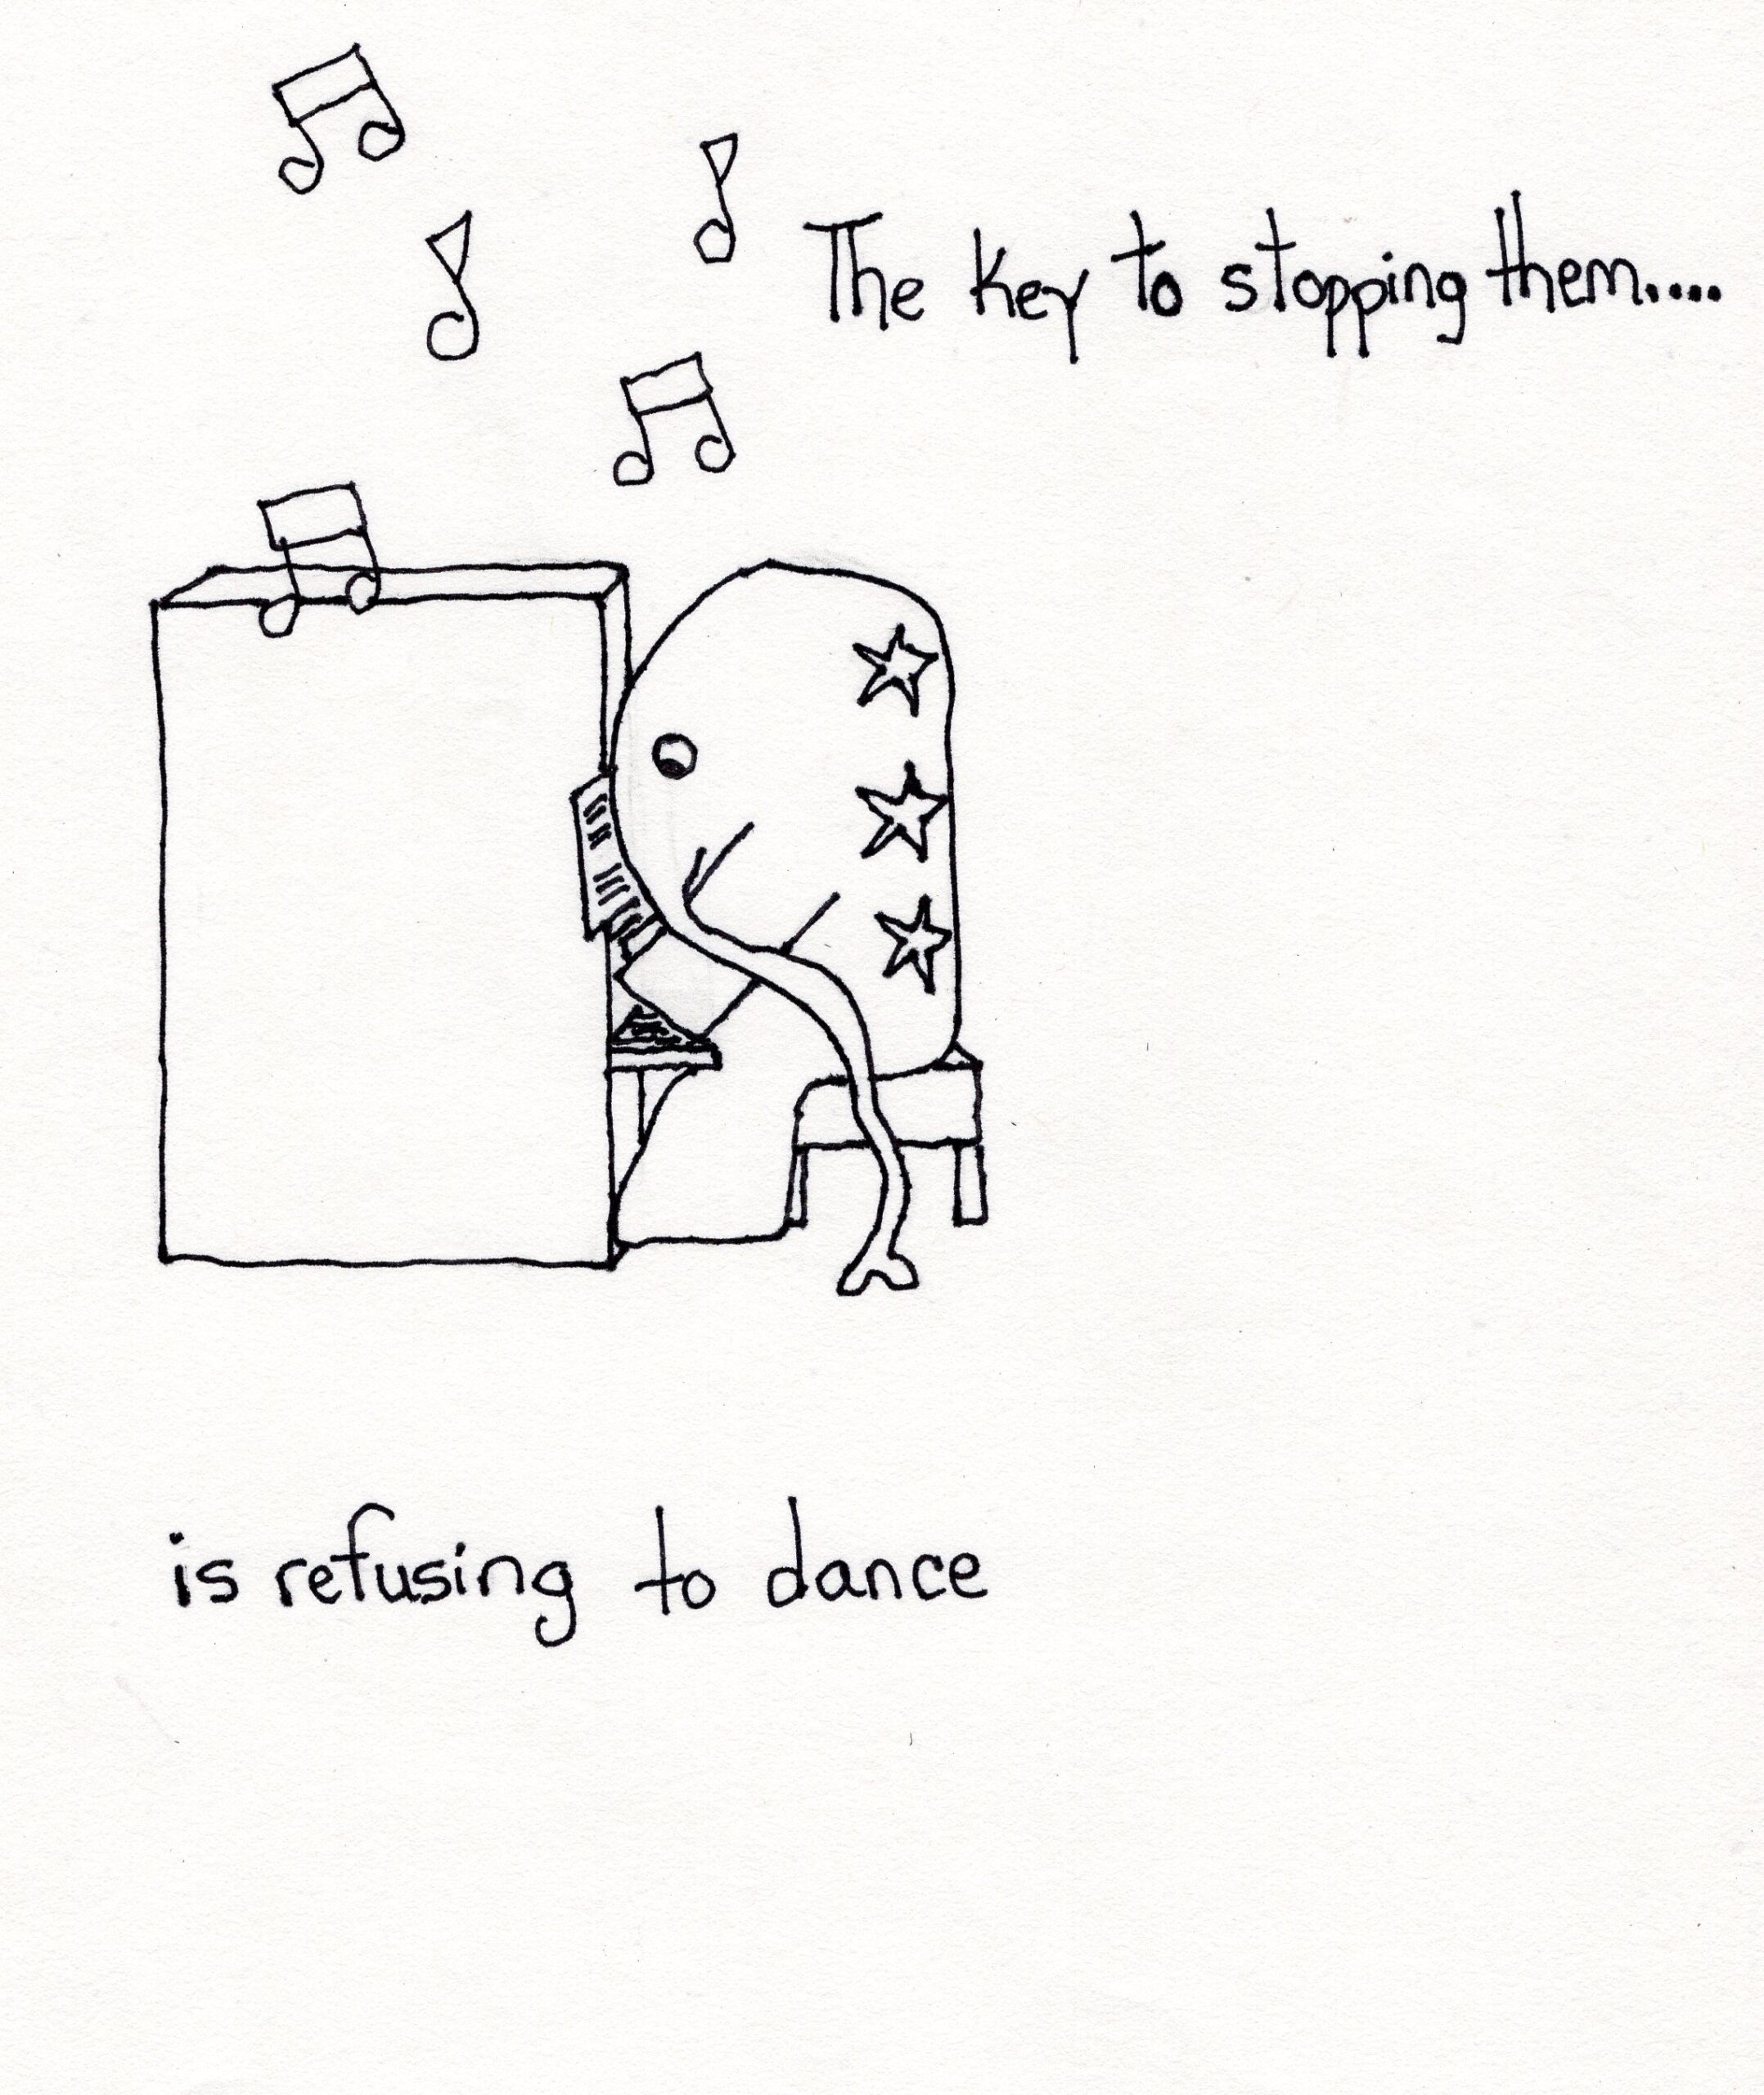 The key to stopping them....
is refusing to dance